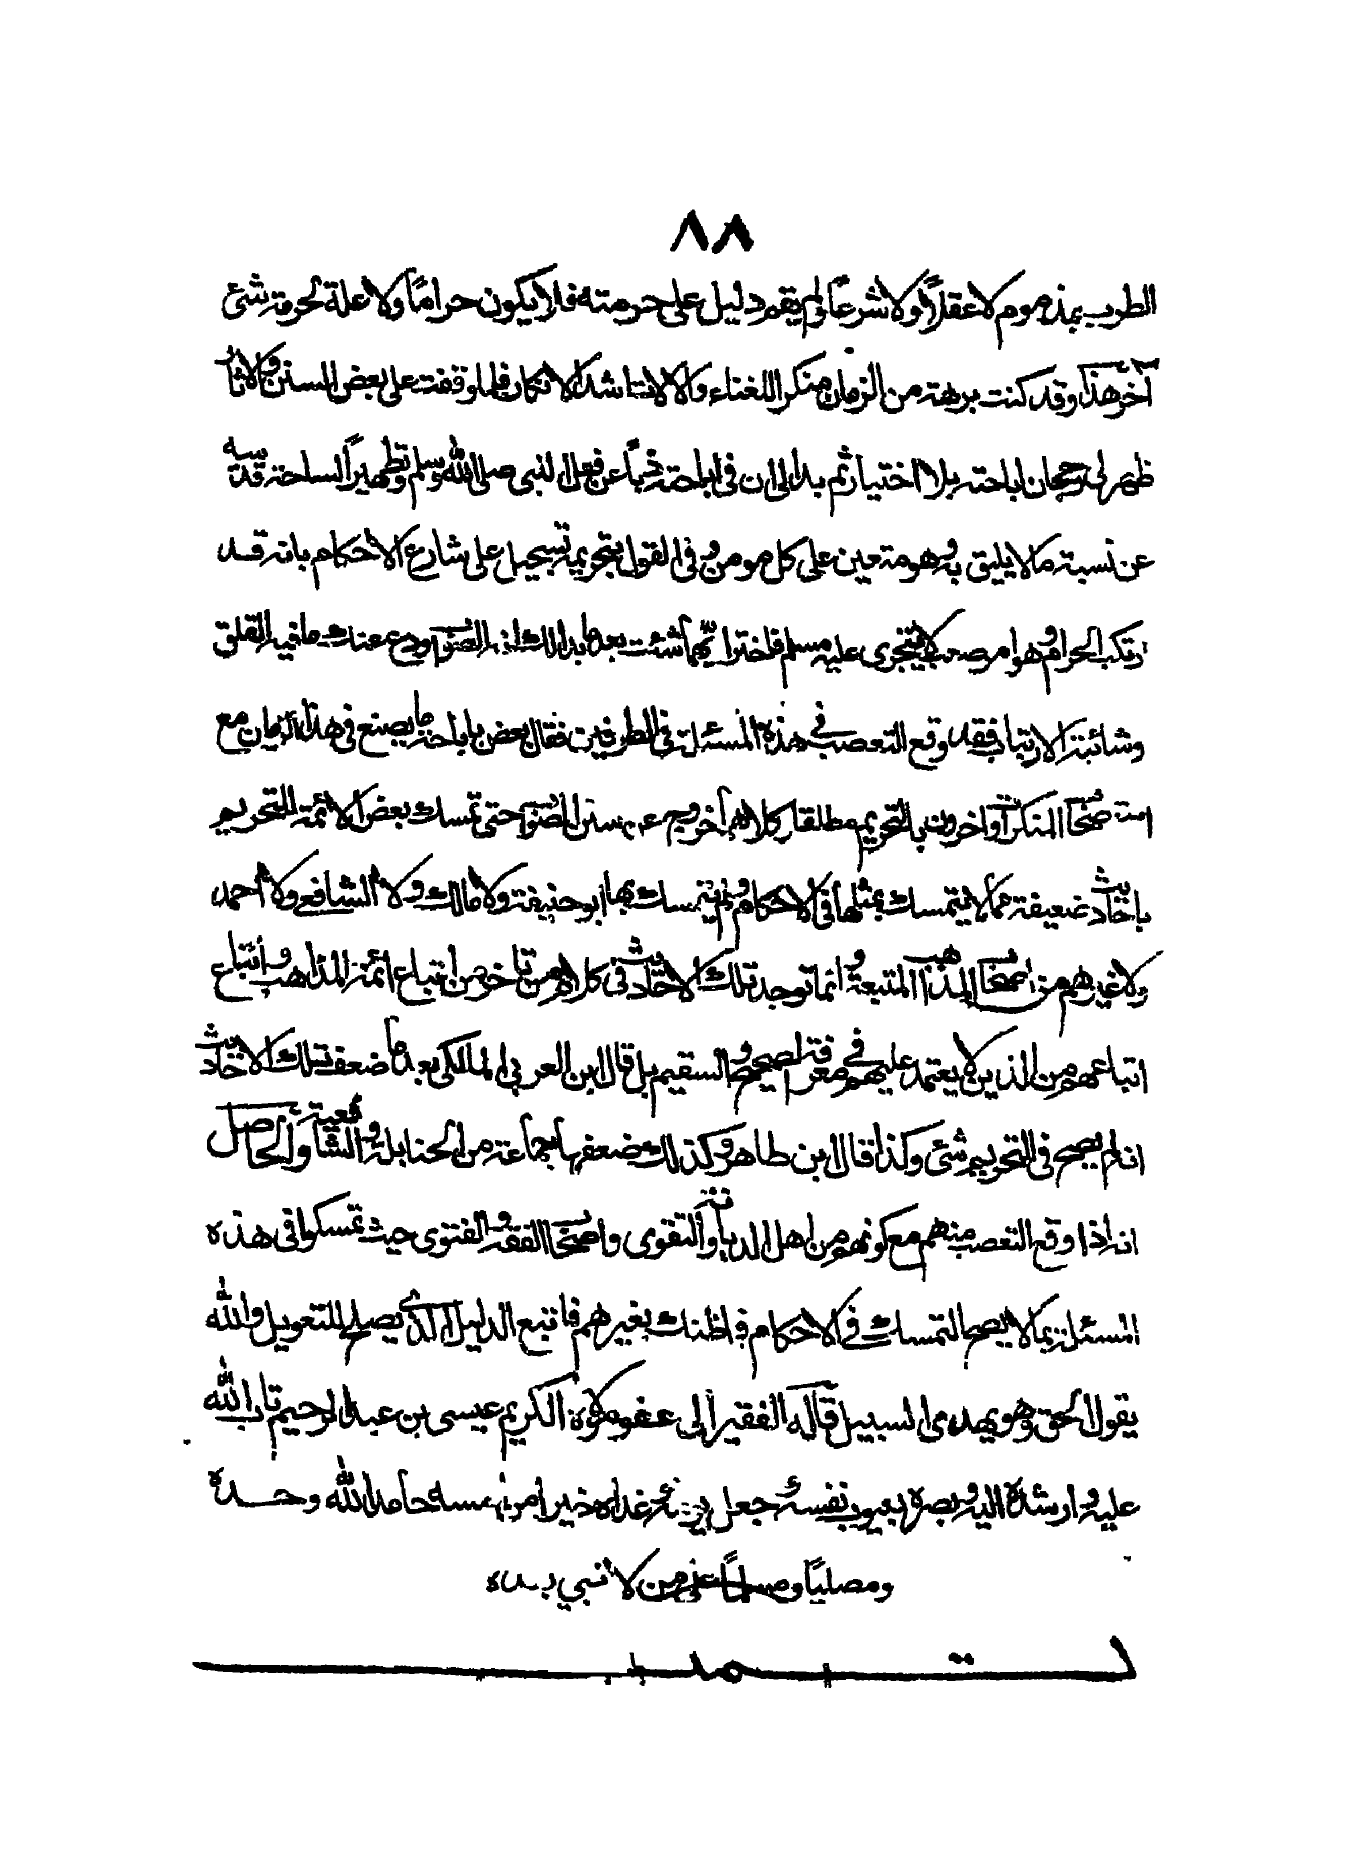 ٨٨
الطرب بمذموم لا عقلاً ولا شرعاً ولم يقم دليل على حرمته فلا يكون حراماً ولا علة لحرمة شئ
آخر هذا وقد كنت برهة من الزمان منكرا للغناء والالات اشد الانكار فلما وقفت على بعض السنن والاثار
ظهر لى رجحان اباحته بلا اختيار ثم بدا لى ان فى اباحته ذباً عن فعل النبى صلى الله وسلم وتطهيراً لساحة قدسه
عن نسبة ما لا يليق به وهو متعين على كل مومن وفى القول بتحريمه تسجيل على شارع الاحكام بانه قد
ارتكب الحرام وهو امر صعب لا يتجرى عليه مسلم فاختر ايهما شئت بعد ما بدا لك الصواب ودع عنك ما فيه القلق
وشائبة الارتياب فقد وقع التعصب فى هذه المسئلة فى الطرفين فقال بعض باباحة ما يصنع فى هذا الزمان مع
المنكرات واخرون بالتحريم مطلقا وكلاهما خروج عن سنن الصواب حتى تمسك بعض الائمة للتحريم
باحاديث ضعيفة مما لا يتمسك بمثلها فى الاحكام ولم يتمسك بها ابو حنيفة ولا مالك ولا الشافعى ولا احمد
ولا غيرهم من اصحاب المذاهب المتبعة وانما توجد تلك الاحاديث فى كلام من تاخر من اتباع ائمة المذاهب واتباع
اتباعهم من الذين لا يعتمد عليهم فى معرفة الصحيح والسقيم بل قال ابن العربى المالكى بعد ما ضعف تلك الاحاديث
انه لم يصح فى التحريم شئ وكذا قال ابن طاهر وكذلك ضعفها جماعة من الحنابلة والشافعية والحاصل
انه اذا وقع التعصب منهم مع كونهم من اهل الديانة والتقوى واصحاب الفقه والفتوى حيث تمسكوا فى هذه
المسئلة بما لا يصح التمسك فى الاحكام فما ظنك بغيرهم فاتبع الدليل الذى يصلح للتعويل والله
يقول الحق وهو يهدى السبيل قاله الفقير الى عفو مولاه الكريم عيسى بن عبد الرحيم تاب الله
عليه وارشده اليه وبصره بعيوب نفسه وجعل غداه خيرا من امسه حامدا لله وحده
ومصلياً ومسلماً على من لا نبي بعده
تمت